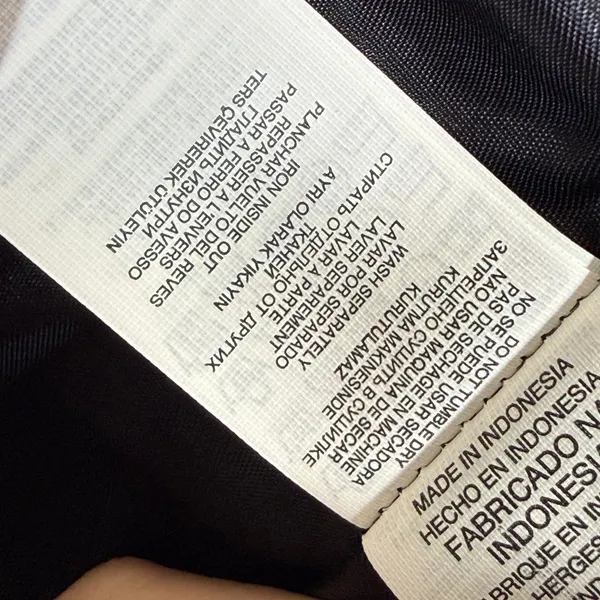 DO NOT TUMBLE DRY
NO SE PUEDE USAR SECADORA
PAS DE SECHAGE EN MACHINE
NÃO USAR MAQUINA DE SECAR
ЗАПРЕЩЕНО СУШИТЬ В СУШИЛКЕ
KURUTMA MAKINESINDE
KURUTULAMAZ
WASH SEPARATELY
LAVAR POR SEPARADO
LAVER SEPAREMENT
LAVAR A PARTE
СТИРАТЬ ОТДЕЛЬНО ОТ ДРУГИХ
ТКАНЕЙ
AYRI OLARAK YIKAYIN
IRON INSIDE OUT
PLANCHAR VUELTO DEL REVES
REPASSER A L'ENVERS
PASSAR A FERRO DO AVESSO
ГЛАДИТЬ ИЗНУТРИ
TERS ÇEVIREREK ÜTÜLEYIN
MADE IN INDONESIA
HECHO EN INDONESIA
FABRICADO NA
INDONESIA